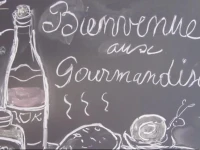 Bienvenue
aux
Gourmandise